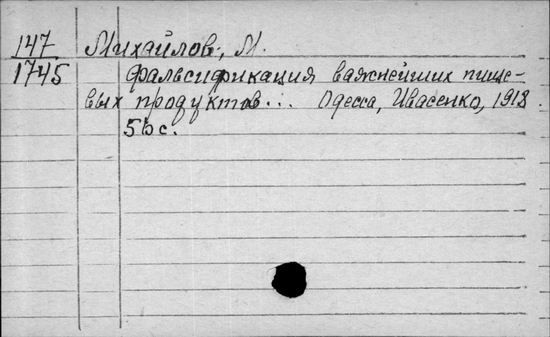 147 Михайлов, М.
1745 Фальсификация важнейших пище-
вых продуктов... Одесса, Ивасенко, 1918.
56 с.